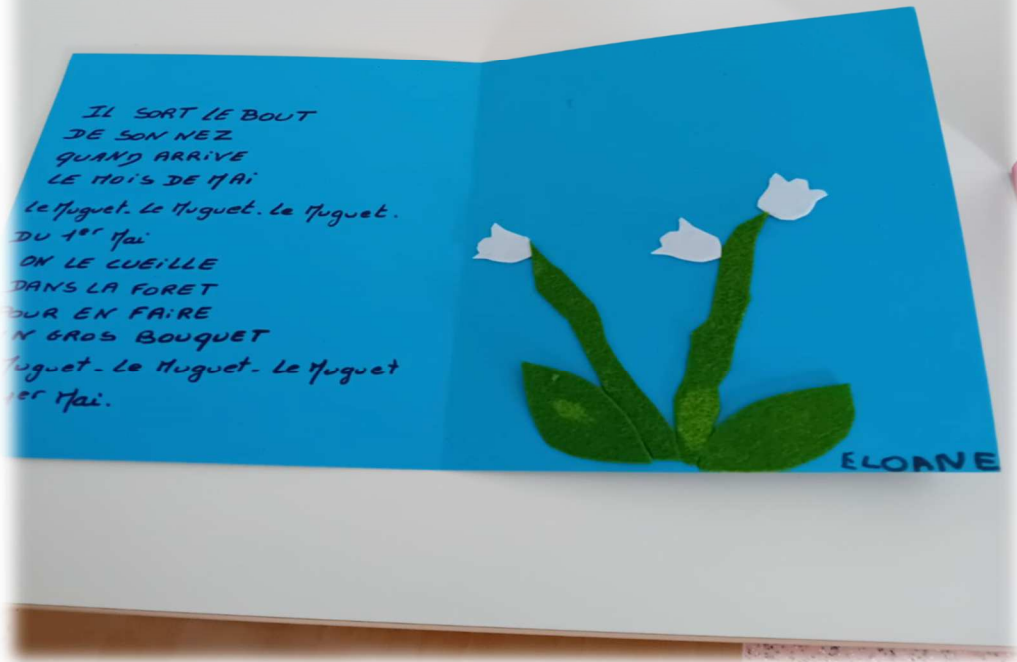 IL SORT LE BOUT
DE SON NEZ
QUAND ARRIVE
LE MOIS DE MAI
Le Muguet. Le Muguet. Le Muguet.
DU 1er Mai
ON LE CUEILLE
DANS LA FORET
POUR EN FAIRE
UN GROS BOUQUET
Muguet - Le Muguet - Le Muguet
1er Mai.
ELOANE